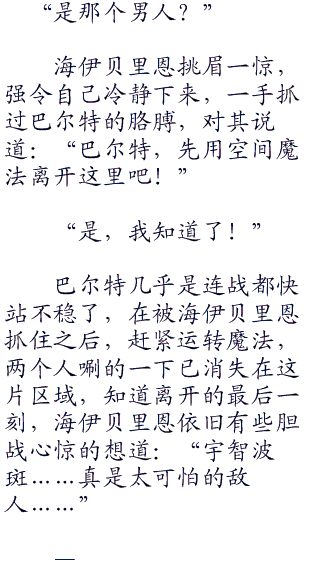 “是那个男人？”
海伊贝里恩挑眉一惊，
强令自己冷静下来，一手抓
过巴尔特的胳膊，对其说
道：“巴尔特，先用空间魔
法离开这里吧！”
“是，我知道了！”
巴尔特几乎是连战都快
站不稳了，在被海伊贝里恩
抓住之后，赶紧运转魔法，
两个人唰的一下已消失在这
片区域，知道离开的最后一
刻，海伊贝里恩依旧有些胆
战心惊的想道：“宇智波
斑……真是太可怕的敌
人……”